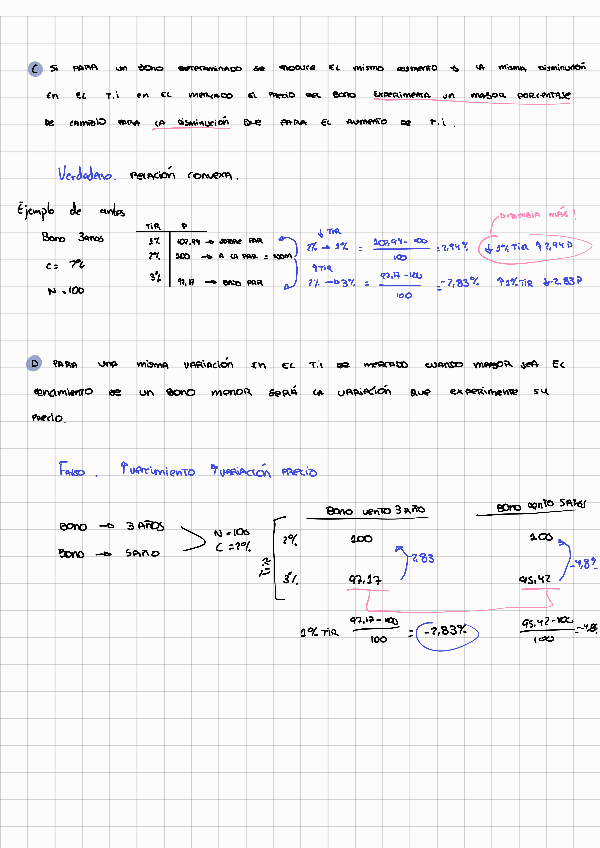 C SI PARA UN BONO DETERMINADO SE PRODUCE EL MISMO AUMENTO Y LA MISMA DISMINUCIÓN
EN EL T.I EN EL MERCADO EL PRECIO DEL BONO EXPERIMENTA UN MAYOR PORCENTAJE
DE CAMBIO PARA LA DISMINUCIÓN QUE PARA EL AUMENTO DE T.I.
Verdadero. RELACIÓN CONVEXA.
Ejemplo de antes
Bono 3años
C = 2%
N = 100
TIR P
1% 102,94 → SOBRE PAR
2% 100 → A LA PAR = NOM
3% 97,17 → BAJO PAR
↓ TIR
2% → 1% = 102,94 - 100 / 100 = 2,94%
↑ TIR
2% → 3% = 97,17 - 100 / 100 = -2,83%
CAMBIA MÁS!
↓ 1% TIR ↑ 2,94 P
↑ 1% TIR ↓ -2,83 P
D PARA UNA MISMA VARIACIÓN EN EL T.I DE MERCADO CUANDO MAYOR SEA EL
VENCIMIENTO DE UN BONO MENOR SERÁ LA VARIACIÓN QUE EXPERIMENTE SU
PRECIO.
FALSO. ↑ VENCIMIENTO ↑ VARIACIÓN PRECIO
BONO → 3 AÑOS
BONO → 5AÑO
N = 100
C = 2%
TIR
BONO VENTO 3 AÑO BONO VENTO 5AÑOS
2% 100 100
2,83 -4,8%
3% 97,17 95,42
1% TIR 97,17 - 100 / 100 = -2,83% 95,42 - 100 / 100 = -4,8